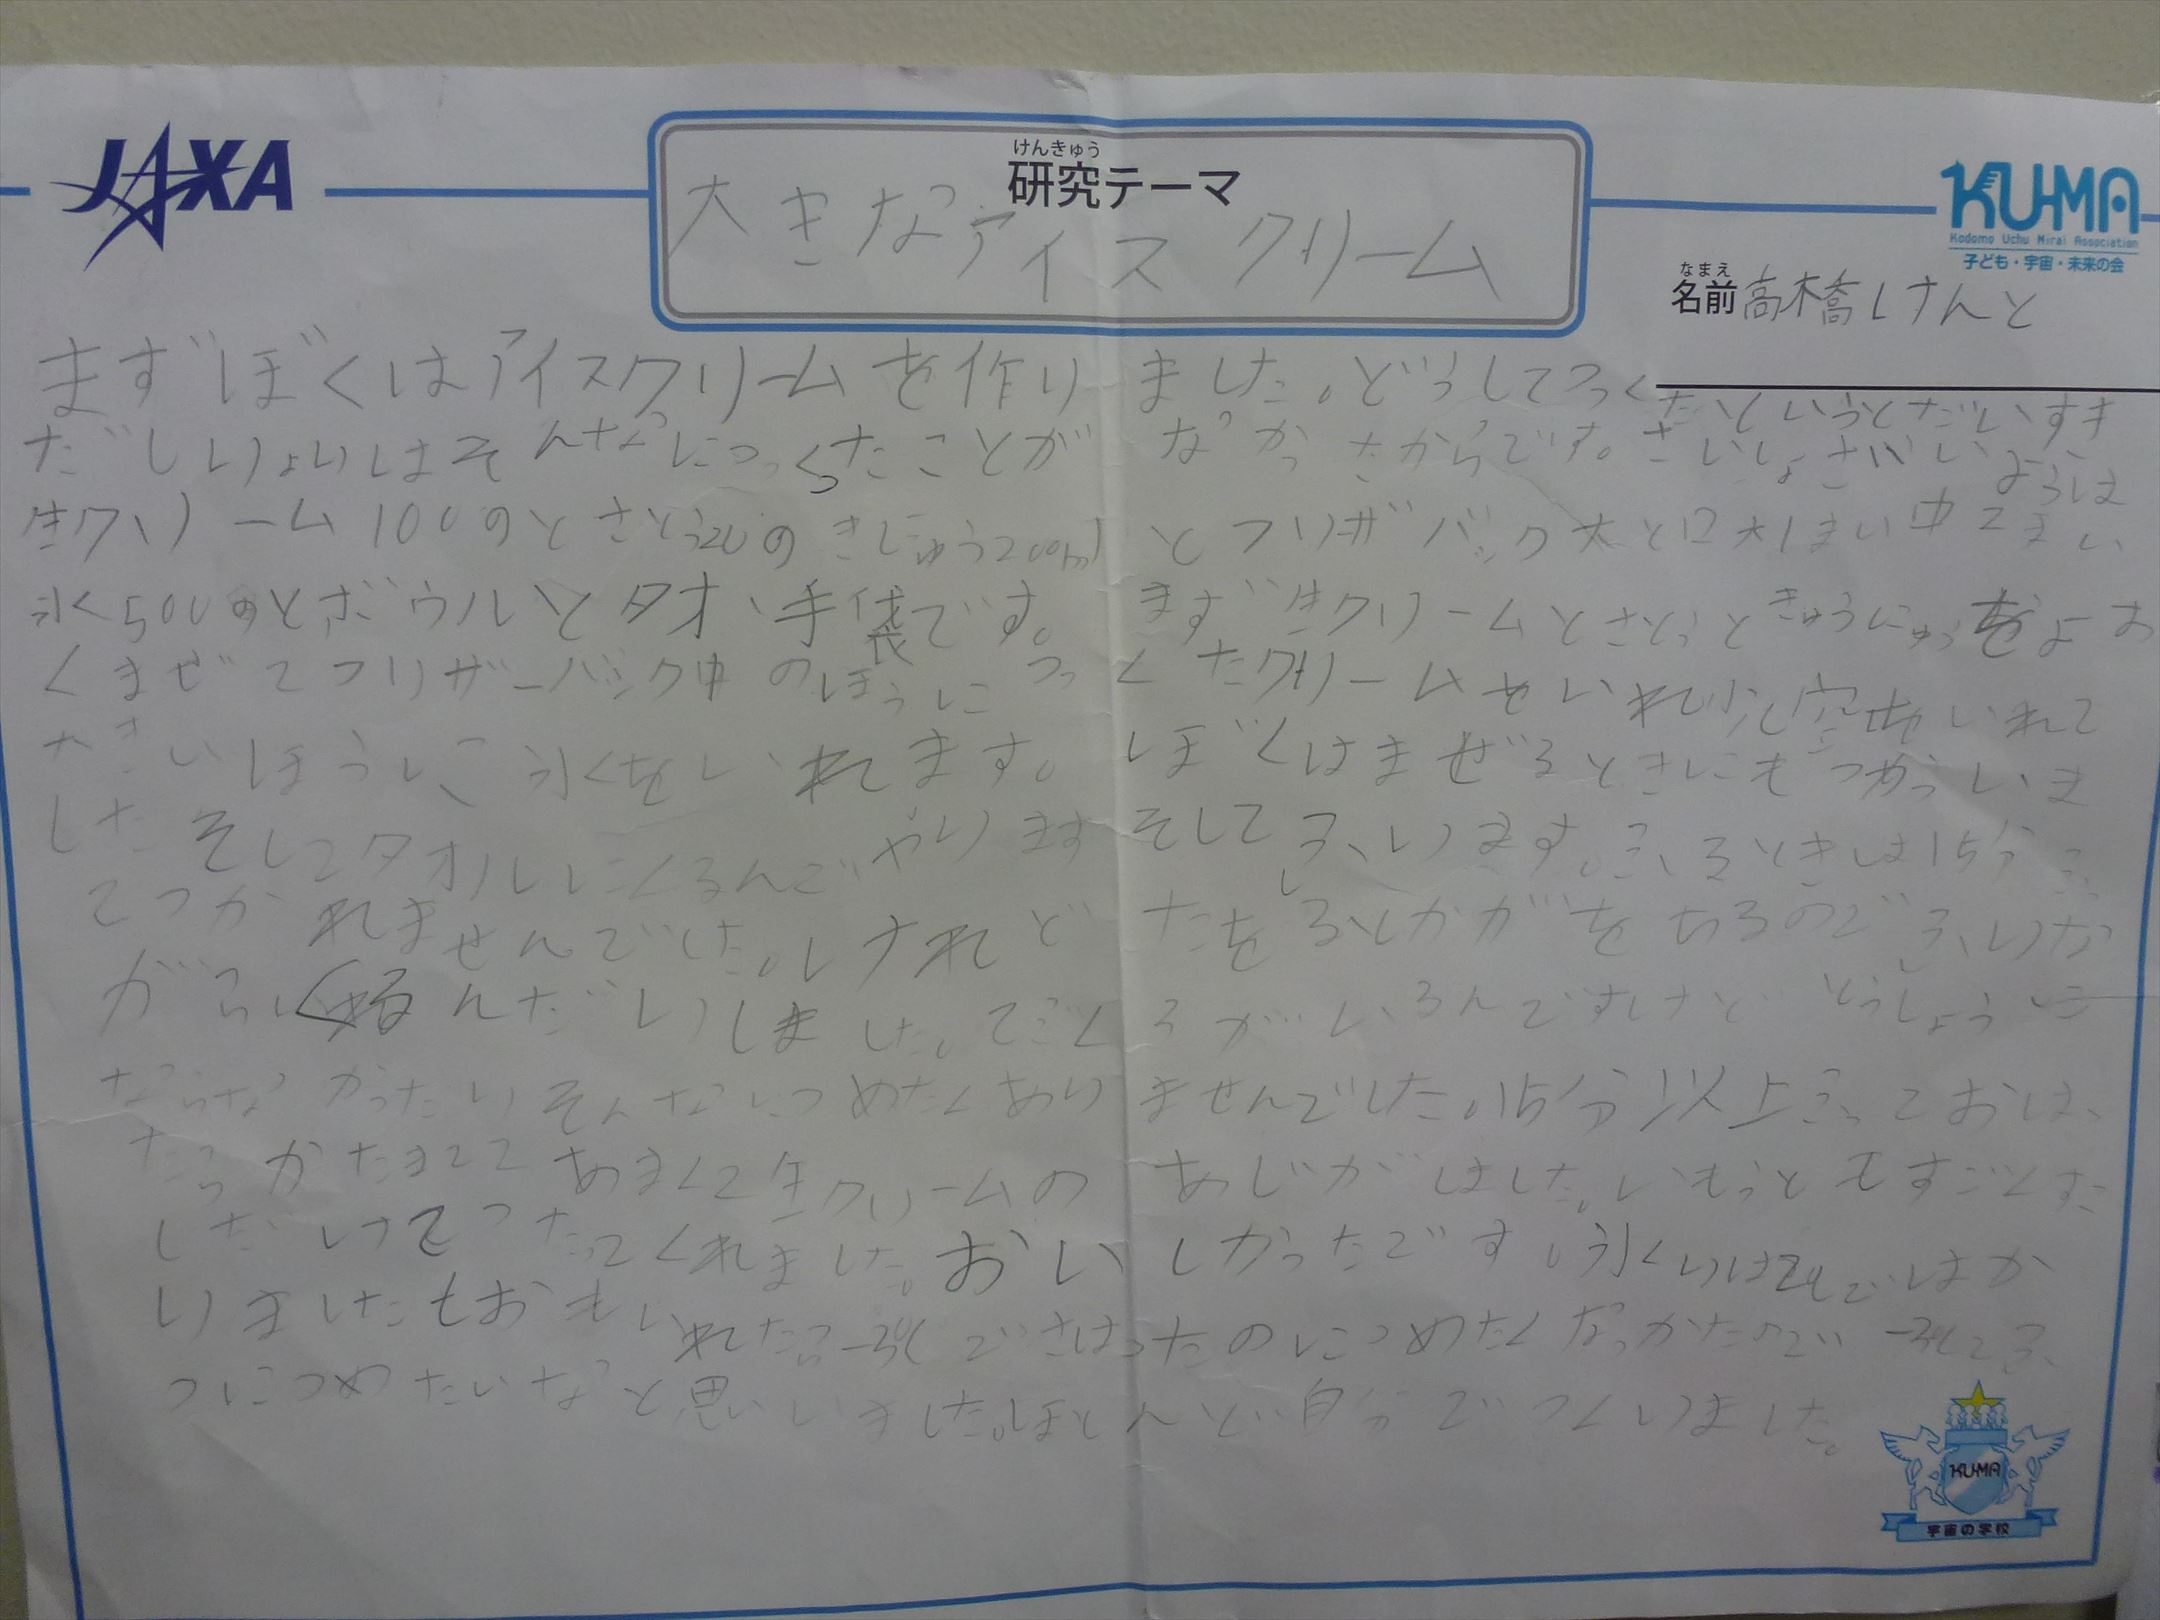 JAXA
けんきゅう
研究テーマ
大きなアイスクリーム
KUMA
Kodomo Uchu Mirai Association
子ども・宇宙・未来の会
なまえ
名前 高橋けんと
まずぼくはアイスクリームを作りました。どうしてつく
たかというとだいすき
だしりょりはそんなにつくったことがなかったからです。さいしょざいりょうは
生クリーム100gとさとう20gぎにゅう200mlとフリザバック大と口大1まい中2まい
氷く500gとボウルとタオル手袋です。まず生クリームとさとうときゅうにゅうをよお
くまぜてフリザーバック中のほうにつくったクリームをいれ少し空きをいれて
大さいほうに氷くをいれます。ぼくはまぜるときにもつかういま
したそしてタオルにくるんでやりますそしてふります。ふるときは15分ふっ
てつかれませんでした。けれどたをるとかがをちるのでふりな
がらくるんだりしました。てぶくろがいるんですけどどうしょうに
ならなかったりそんなにつめたくありませんでした。15分以上ふっておは、
たらかたまてて あまくて生クリームのあじがしました。いもうともすごくた
しだけてつだってくれました。おいしかったです。氷くりは でばか
りましたもおもいれたら-3℃でさわったのにつめたくなっかたので -3℃てふ
つにつめたいなと思いました。ほとんど自分でつくりました。
KUMA
宇宙の学校